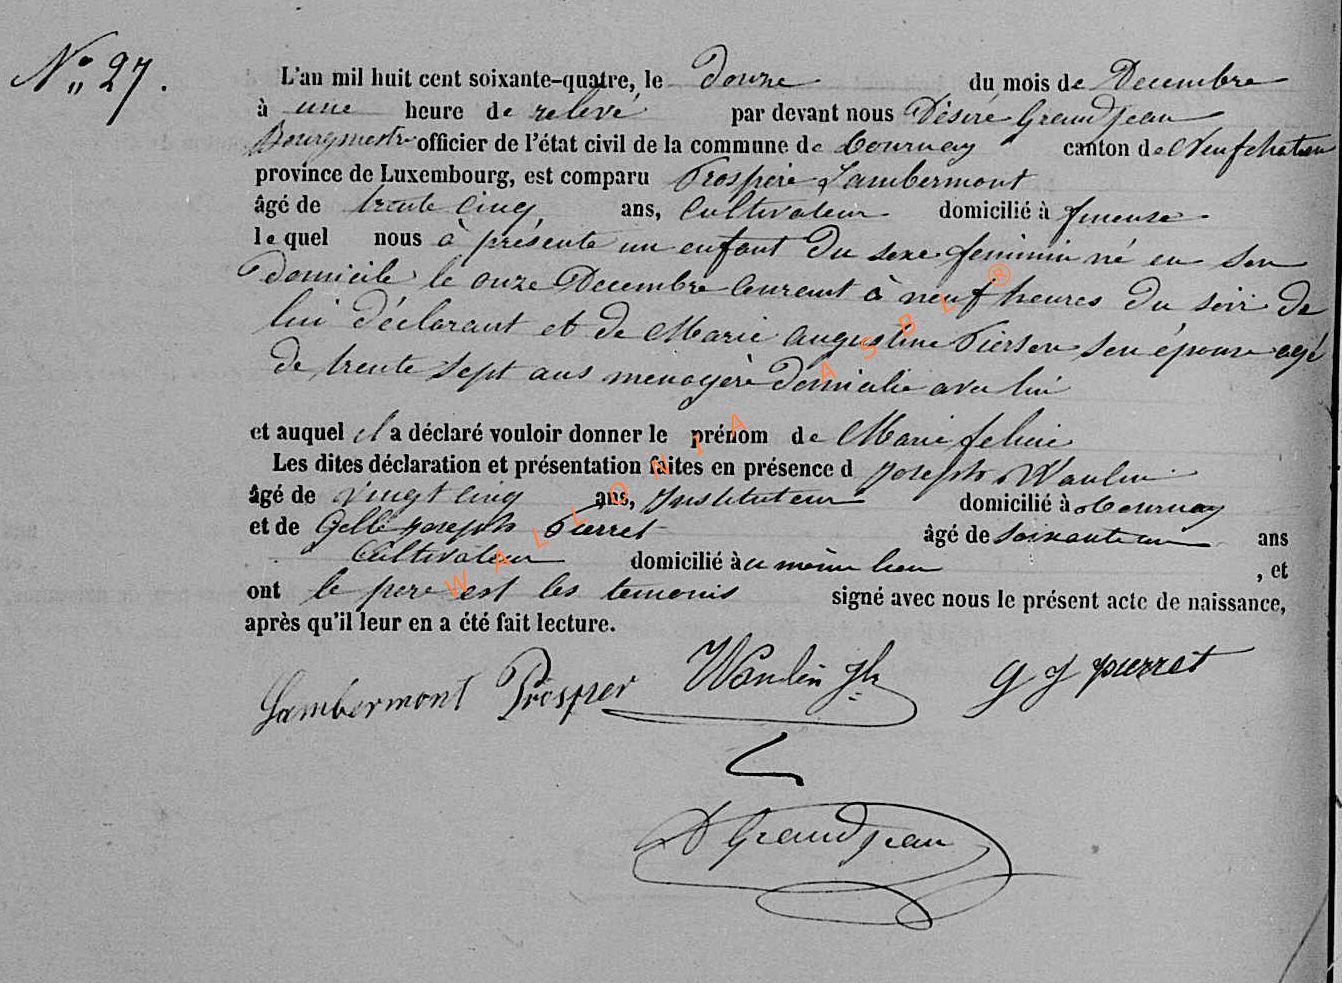 N° 27.
L'an mil huit cent soixante-quatre, le douze du mois de Decembre
à une heure de relevé par devant nous Désiré Grandjean
Bourgmestre officier de l'état civil de la commune de Tournay canton de Neufchateau
province de Luxembourg, est comparu Prospère Lambermont
âgé de trente cinq ans, Cultivateur domicilié à
le quel nous à présenté un enfant du sexe feminin né en son
domicile le onze Decembre courant à neuf heures du soir de
lui déclarant et de Marie Augustine Pierson son épouse agé
de trente sept ans menagère domicilié avec lui
et auquel il a déclaré vouloir donner le prénom de Marie felicie
Les dites déclaration et présentation faites en présence d Joseph Wanlin
âgé de vingt cinq ans, Instituteur domicilié à Tournay
et de Gelle joseph Pierret âgé de soixante un ans
Cultivateur domicilié à u même lieu , et
ont le pere est les temonis signé avec nous le présent acte de naissance,
après qu'il leur en a été fait lecture.
Lambermont Prosper Wanlin Jh g J pierret
D Grandjean
WALLONIA ASBL ®